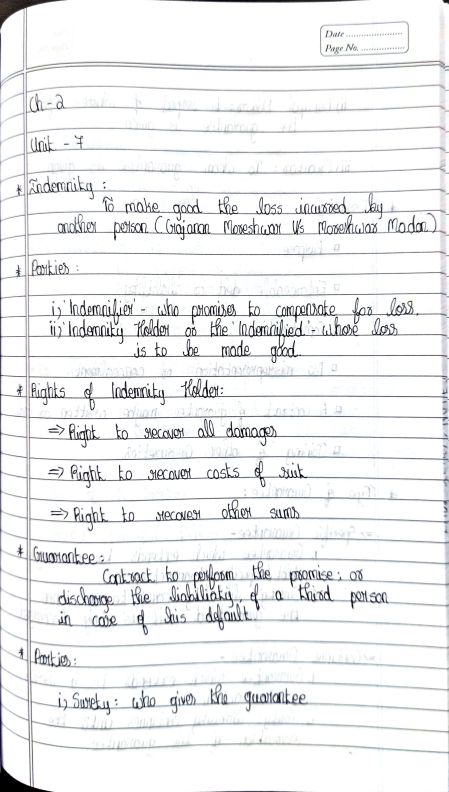 Date ......................
Page No. ..................
Ch - 2
Unit - 7
* Indemnity :
To make good the loss incurried by
another person (Gajanan Moreshwar V/s Moreshwar Madan)
* Parties :
i) 'Indemnifier' - who promises to compensate for loss.
ii) 'Indemnity Holder or the 'Indemnified' - whose loss
is to be made good.
* Rights of Indemnity Holder:
⇒ Right to recover all damages
⇒ Right to recover costs of suit
⇒ Right to recover other sums
* Guarantee :
Contract to perform the promise; or
discharge the liability, of a third person
in case of his default.
* Parties:
i) Surety : who gives the guarantee